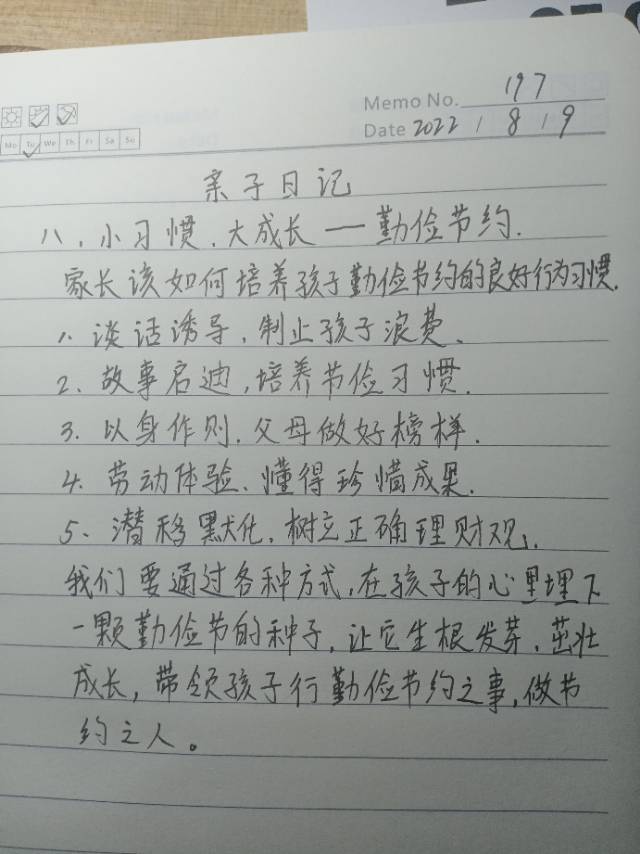 Memo No. 197
Mo Tu We Th Fr Sa Su
Date 2022 / 8 / 9
亲子日记
八、小习惯、大成长——勤俭节约.
家长该如何培养孩子勤俭节约的良好行为习惯.
1、谈话诱导,制止孩子浪费、
2、故事启迪,培养节俭习惯.
3、以身作则,父母做好榜样.
4、劳动体验、懂得珍惜成果.
5、潜移默化,树立正确理财观.
我们要通过各种方式,在孩子的心里埋下
一颗勤俭节的种子,让它生根发芽、茁壮
成长,带领孩子行勤俭节约之事,做节
约之人。